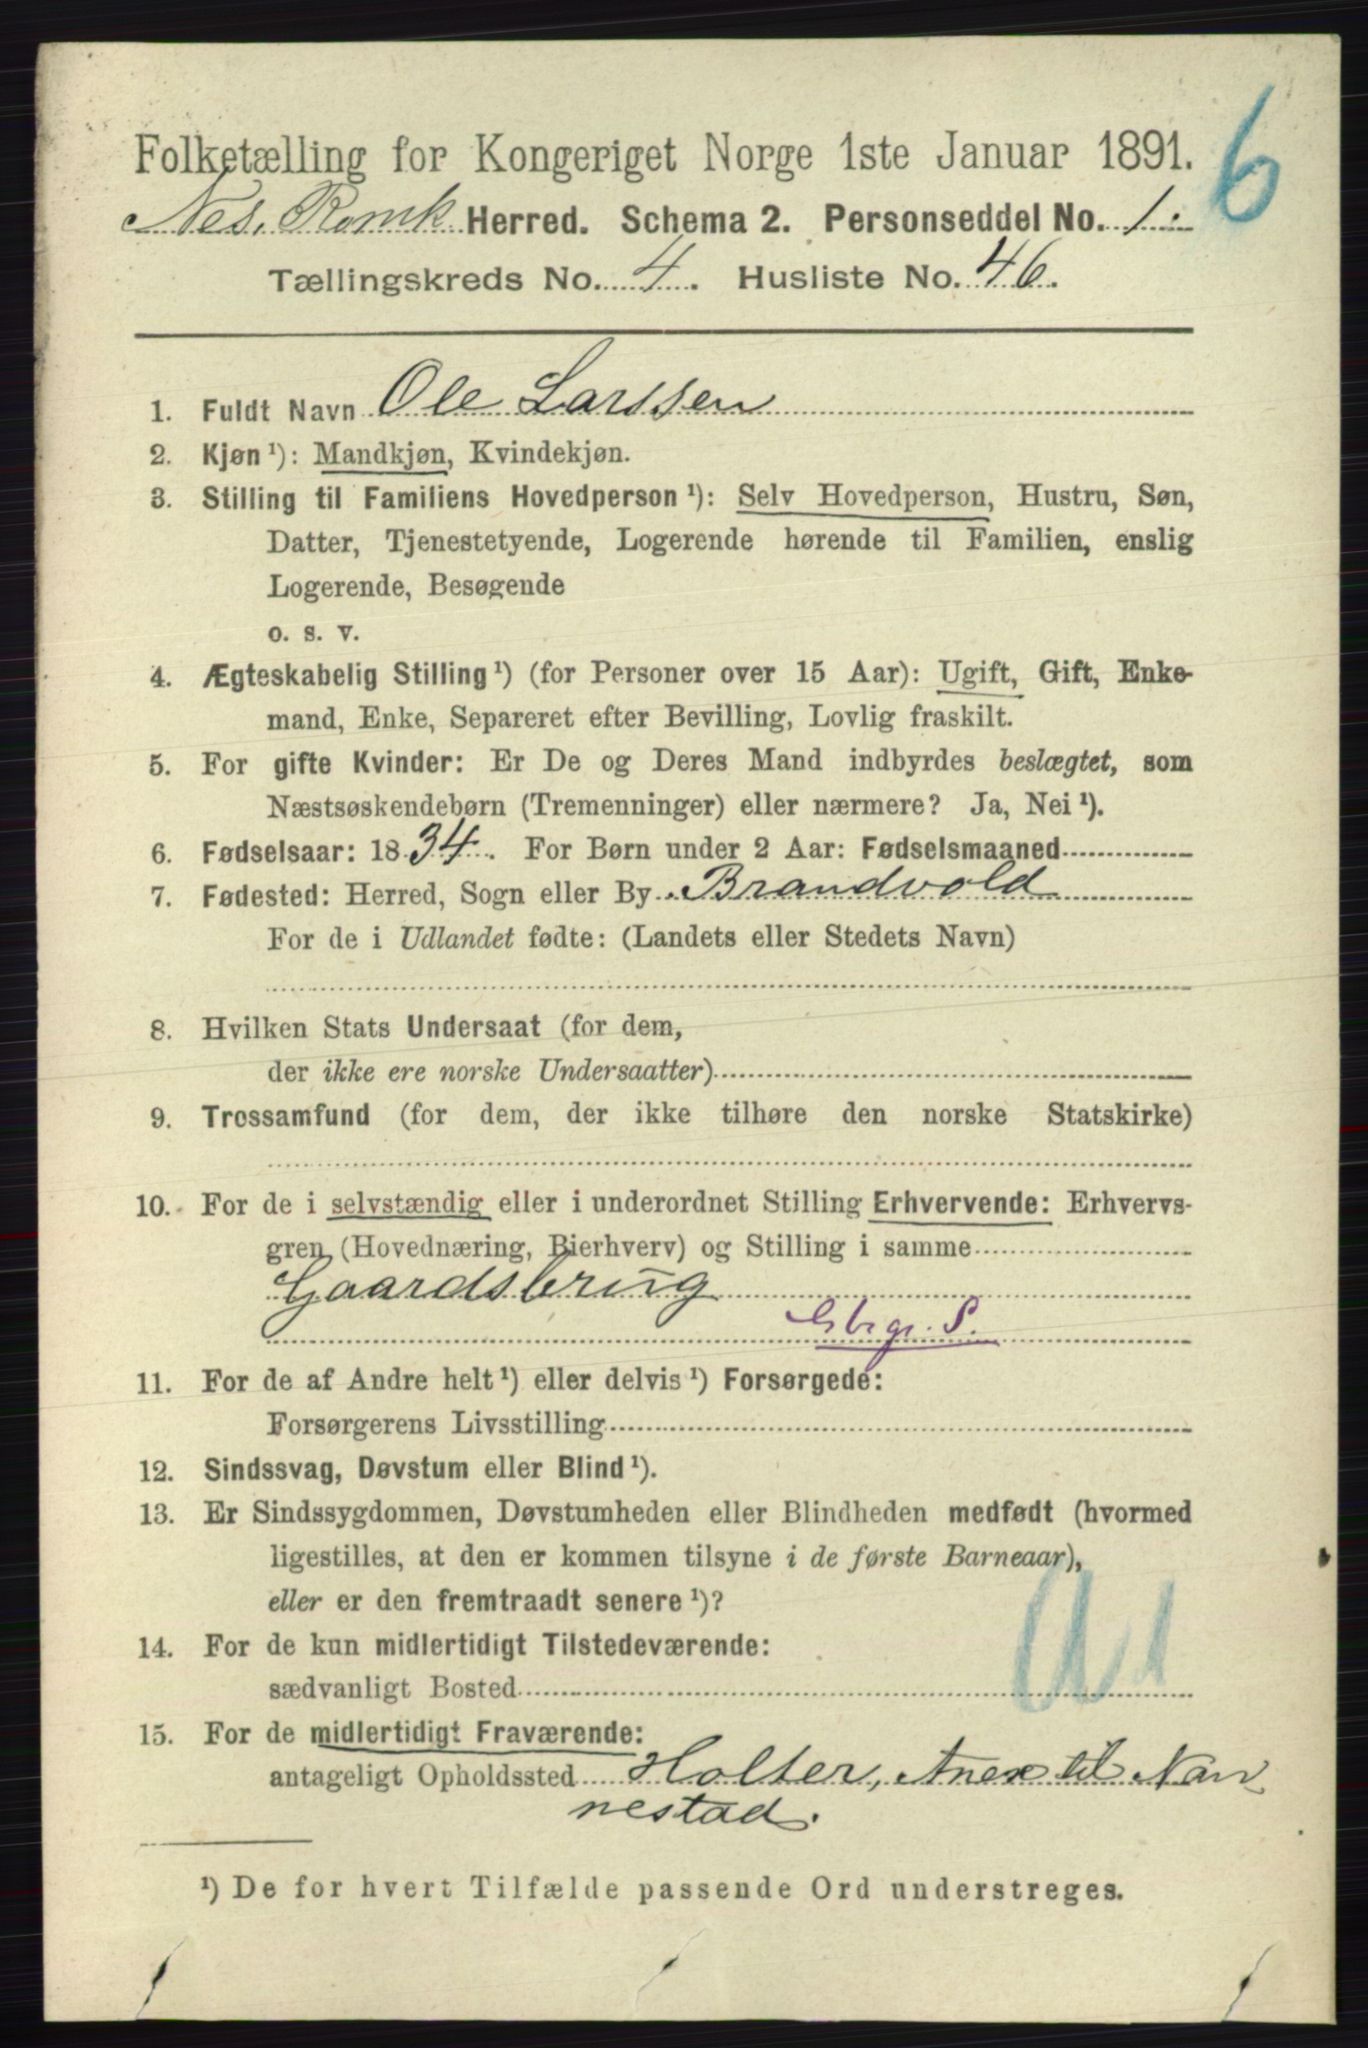 Folketælling for Kongeriget Norge 1ste Januar 1891.
6
Nes, Romk Herred. Schema 2. Personseddel No. 1.
Tællingskreds No. 4. Husliste No. 46.
1. Fuldt Navn Ole Larssen
2. Kjøn ¹): Mandkjøn, Kvindekjøn.
3. Stilling til Familiens Hovedperson ¹): Selv Hovedperson, Hustru, Søn,
Datter, Tjenestetyende, Logerende hørende til Familien, enslig
Logerende, Besøgende
o. s. v.
4. Ægteskabelig Stilling ¹) (for Personer over 15 Aar): Ugift, Gift, Enke-
mand, Enke, Separeret efter Bevilling, Lovlig fraskilt.
5. For gifte Kvinder: Er De og Deres Mand indbyrdes beslægtet, som
Næstsøskendebørn (Tremenninger) eller nærmere? Ja, Nei ¹).
6. Fødselsaar: 1834. For Børn under 2 Aar: Fødselsmaaned
7. Fødested: Herred, Sogn eller By Brandvold
For de i Udlandet fødte: (Landets eller Stedets Navn)
8. Hvilken Stats Undersaat (for dem,
der ikke ere norske Undersaatter)
9. Trossamfund (for dem, der ikke tilhøre den norske Statskirke)
10. For de i selvstændig eller i underordnet Stilling Erhvervende: Erhvervs-
gren (Hovednæring, Bierhverv) og Stilling i samme
Gaardsbrug
Gbgr. S.
11. For de af Andre helt ¹) eller delvis ¹) Forsørgede:
Forsørgerens Livsstilling
12. Sindssvag, Døvstum eller Blind ¹).
13. Er Sindssygdommen, Døvstumheden eller Blindheden medfødt (hvormed
ligestilles, at den er kommen tilsyne i de første Barneaar),
eller er den fremtraadt senere ¹)?
14. For de kun midlertidigt Tilstedeværende:
sædvanligt Bosted
15. For de midlertidigt Fraværende:
antageligt Opholdssted Holter, Anex til Nan
nestad.
¹) De for hvert Tilfælde passende Ord understreges.